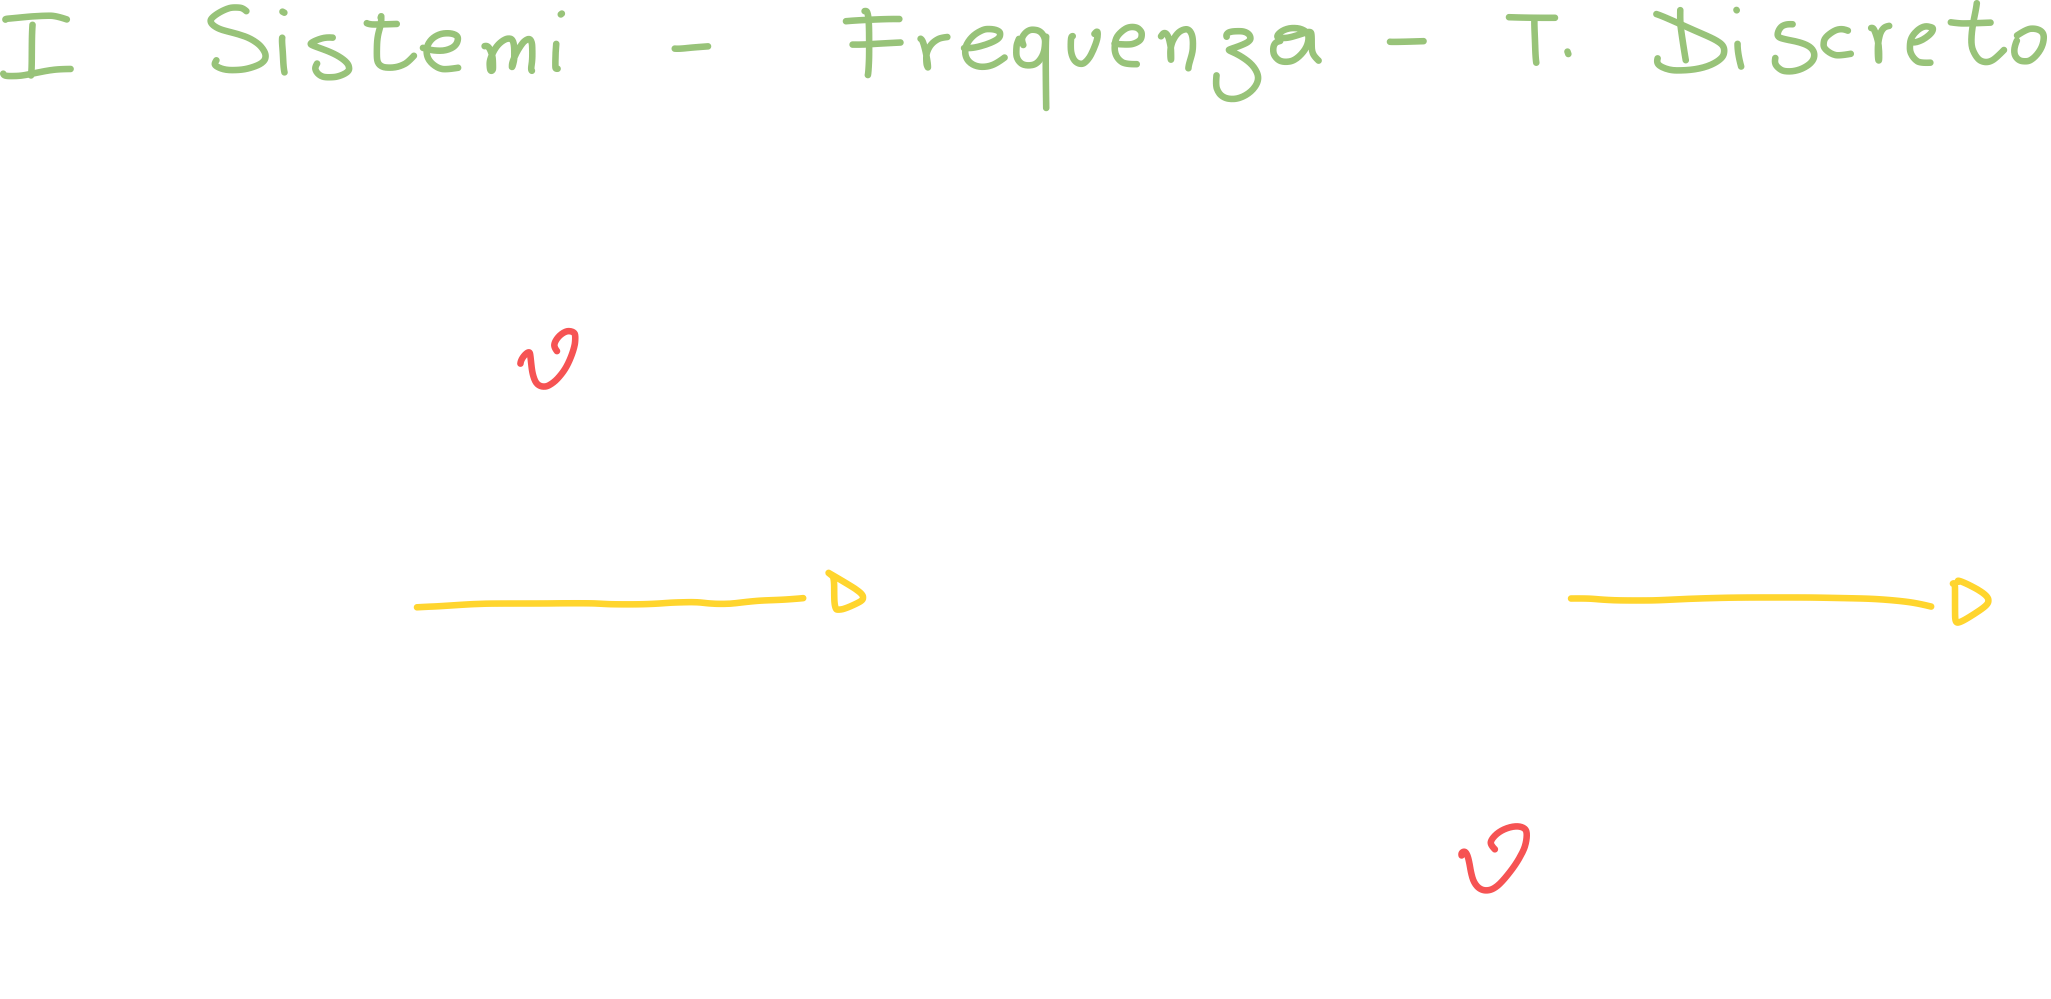 I Sistemi - Frequenza - T. Discreto
ν
ν